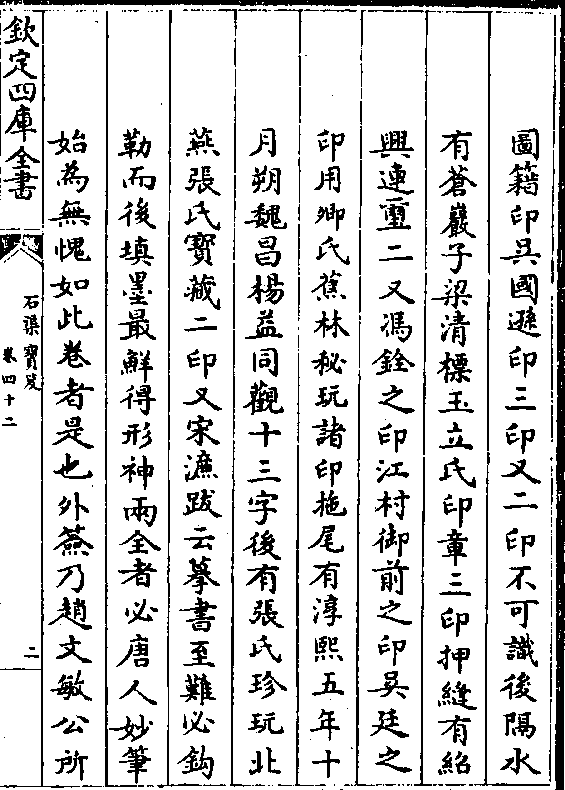 圖籍印吳國遜印三印又二印不可識後隔水
有蒼巖子梁清標玉立氏印章三印押縫有紹
興連璽二又馮銓之印江村御前之印吳廷之
印用卿氏蕉林秘玩諸印拖尾有淳熙五年十
月朔魏昌楊益同觀十三字後有張氏珍玩北
燕張氏寳藏二印又宋濂跋云摹書至難必鈎
勒而後填墨最鮮得形神兩全者必唐人妙筆
始為無愧如此卷者是也外籖乃趙文敏公所
欽定四庫全書
石渠寳笈
卷四十二
二